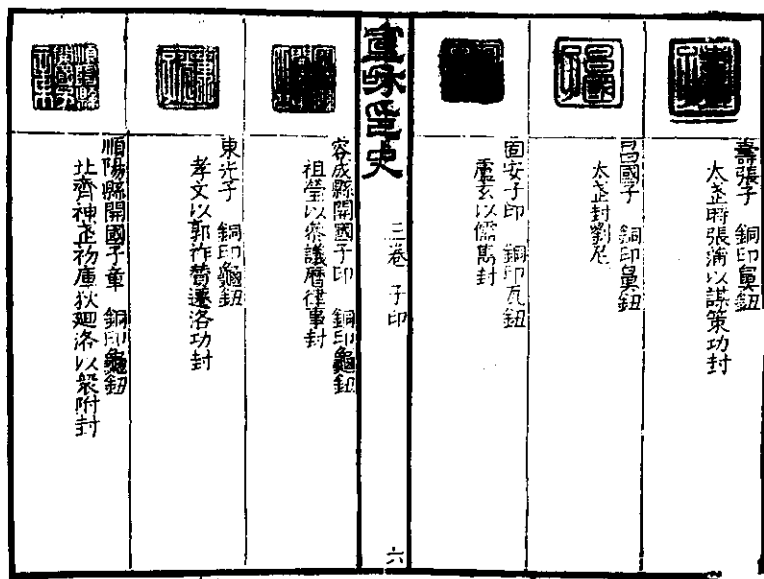 壽張子 銅印鼻鈕
太武時張蒲以謀策功封
昌國子 銅印鼻鈕
太武封劉尼
固安子印 銅印瓦鈕
盧玄以儒雋封
宣和印史
三卷 子印
六
容成縣開國子印 銅印龜鈕
祖瑩以參議曆律事封
東光子 銅印龜鈕
孝文以郭祚贊遷洛功封
順陽縣開國子章 銅印龜鈕
北齊神武初庫狄廻洛以衆附封